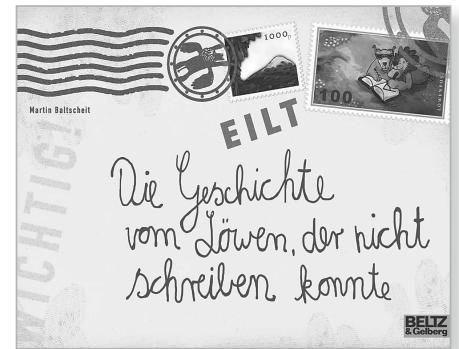 1000
100
Martin Baltscheit
EILT
Die Geschichte
vom Löwen, der nicht
schreiben konnte
WICHTIG!
BELTZ
& Gelberg